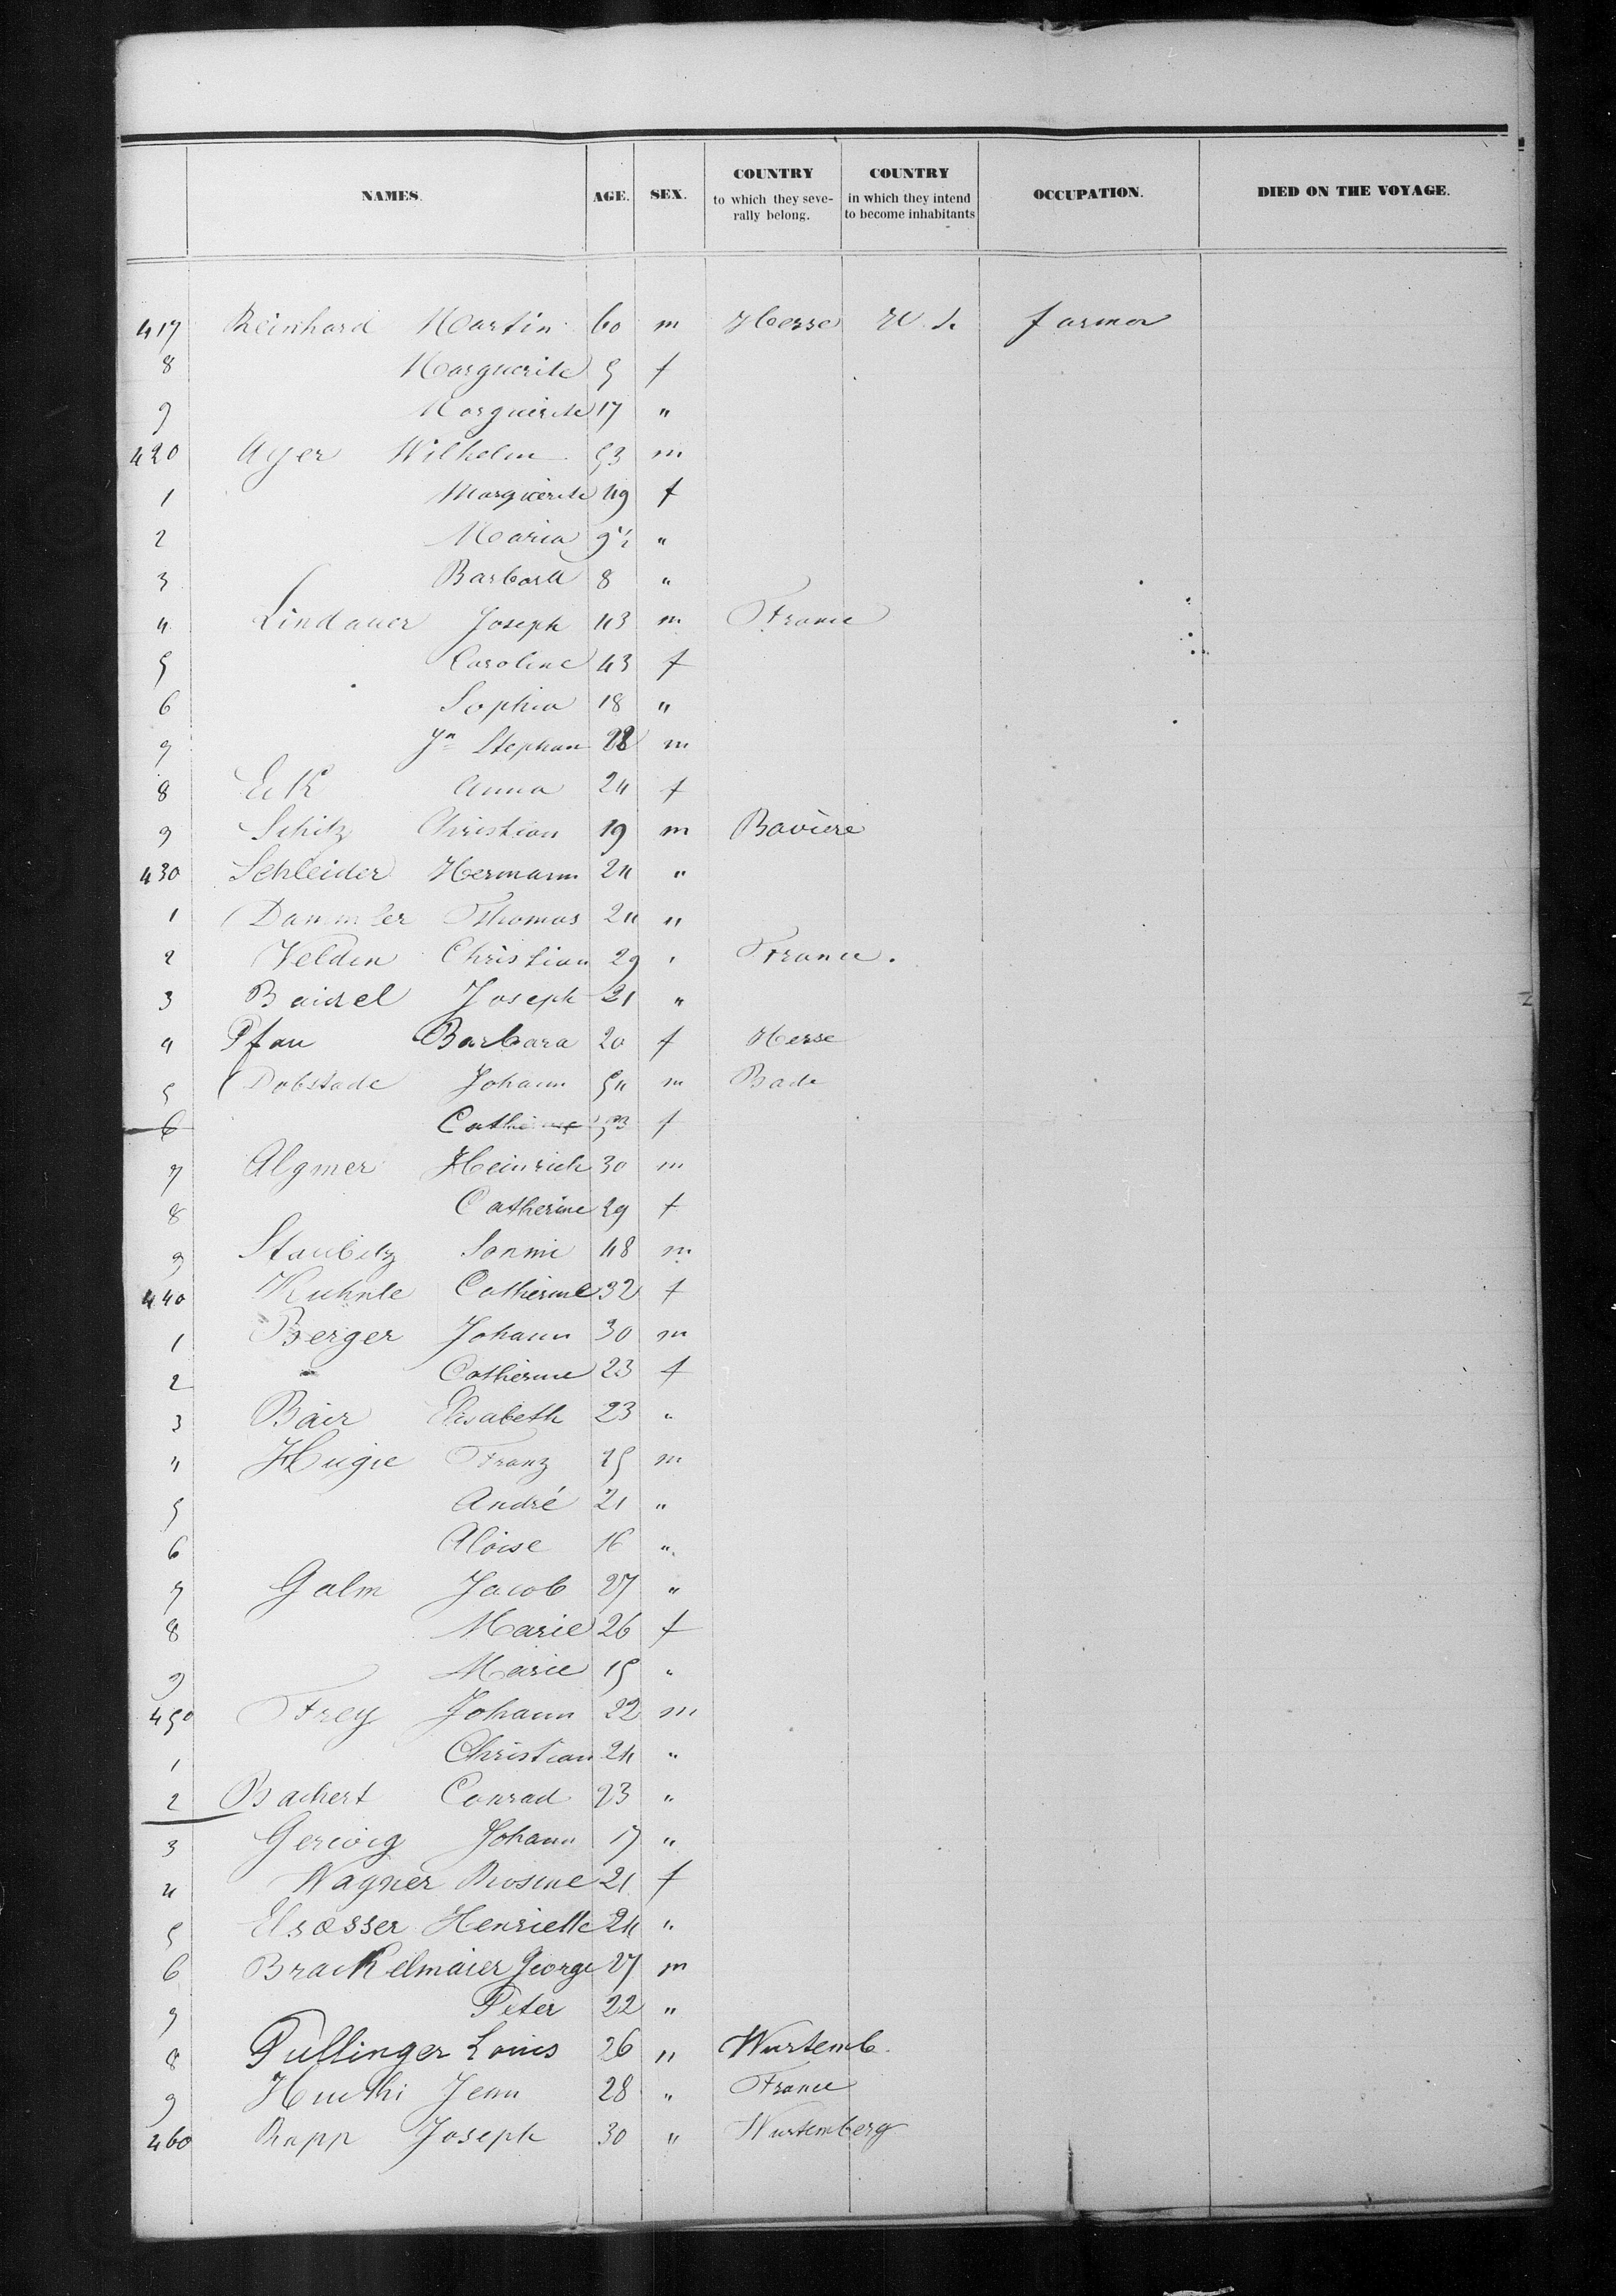 NAMES. AGE. SEX. COUNTRY to which they severally belong. COUNTRY in which they intend to become inhabitants OCCUPATION. DIED ON THE VOYAGE.
417 Reinhard Martin 60 m Hesse U. S. farmer
8 Marguerite 5 f
9 Marguerite 17 "
420 Ayer Wilhelm 53 m
1 Marguerite 49 f
2 Maria 9½ "
3 Barbara 8 "
4 Lindauer Joseph 43 m France
5 Caroline 43 f
6 Sophia 18 "
7 Jn Stephan 28 m
8 Eck Anna 24 f
9 Schitz Christian 19 m Bavière
430 Schleider Hermann 24 "
1 Dammler Thomas 24 "
2 Velden Christian 29 " France.
3 Baidel Joseph 21 "
4 Pfau Barbara 20 f Hesse
5 Dobstade Johann 54 m Bade
6 Catherine 53 f
7 Algmer Heinrich 30 m
8 Catherine 29 f
9 Staubitz 48 m
440 Kuhnle Catherine 32 f
1 Berger Johann 30 m
2 " Catherine 23 f
3 Bair Elisabeth 23 "
4 Hugie Franz 25 m
5 André 21 "
6 Aloise 16 "
7 Galm Jacob 27 "
8 Marie 26 f
9 Marie 15 "
450 Frey Johann 22 m
1 Christian 24 "
2 Bachert Conrad 23 "
3 Gerwig Johann 17 "
4 Wagner Rosine 21 f
5 Elsasser Henriette 24 "
6 Brackelmaier George 27 m
7 Peter 22 "
8 Pullinger Louis 26 " Wurtemb.
9 Huethi Jean 28 " France
460 Rapp Joseph 30 " Wurtemberg